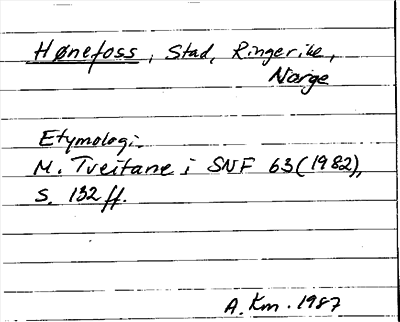 Hønefoss, Stad, Ringerike,
Norge
Etymologi.
M. Tveitane i SNF 63 (1982),
S. 132 ff.
A. Km. 1987